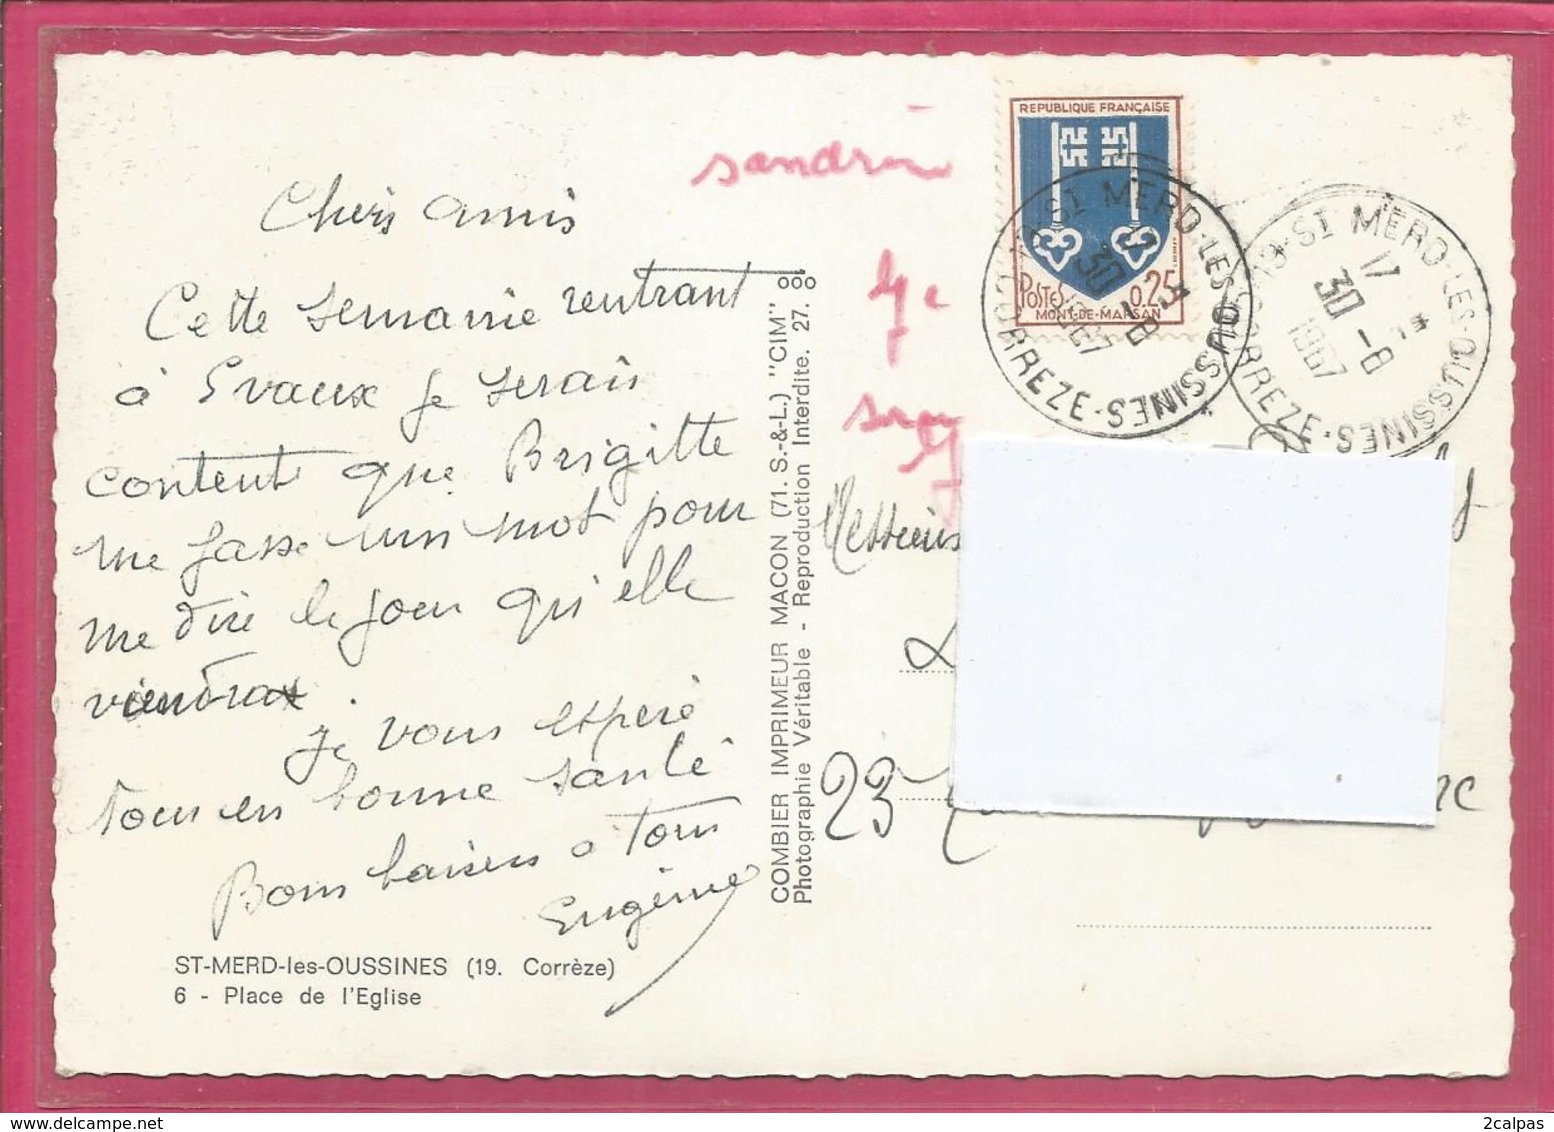 Chers amis
Cette semaine rentrant
à Evaux je serais
content que Brigitte
me fasse un mot pour
me dire le jour qu'elle
viendrat.
je vous espère
tous en bonne santé
Bons baisers a tous
Eugène
ST-MERD-les-OUSSINES (19. Corrèze)
6 - Place de l'Eglise
COMBIER IMPRIMEUR MACON (71. S.-&-L.) "CIM"
Photographie Véritable - Reproduction Interdite. 27.
sandrin
REPUBLIQUE FRANÇAISE
POSTES 0.25
MONT-DE-MARSAN
19-ST MERD-LES-OUSSINES-CORREZE
17
30-8
1967
19-ST MERD-LES-OUSSINES-CORREZE
17
30-8
1967
Messieurs
23
2calpas